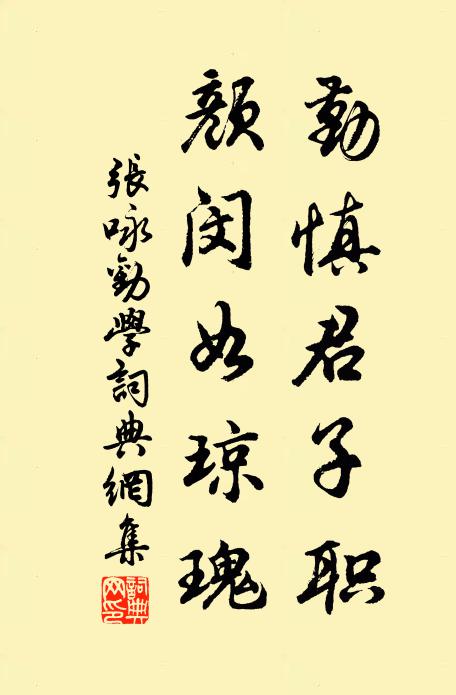 勤慎君子职
颜闵如琼瑰
張咏勸學詞典網集
詞典
网印